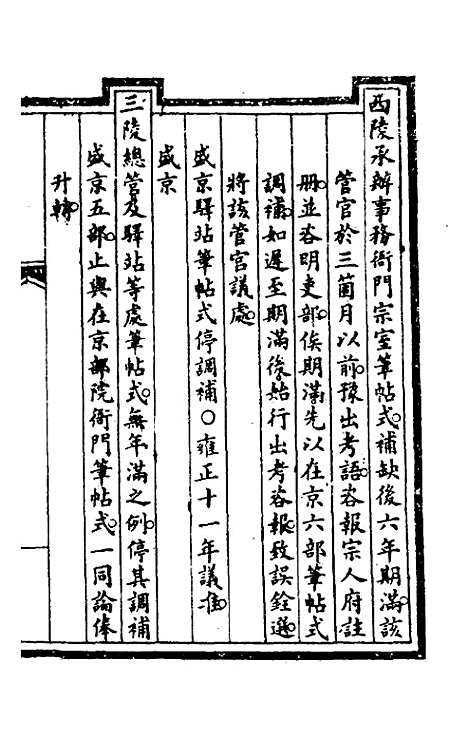 西陵承辦事務衙門宗室筆帖式補缺後六年期滿該
管官於三箇月以前豫出考語咨報宗人府註
冊並咨明吏部俟期滿先以在京六部筆帖式
調補如遲至期滿後始行出考咨報致誤銓選
將該管官議處
盛京驛站筆帖式停調補○雍正十一年議准
盛京
三陵總管及驛站等處筆帖式無年滿之例停其調補
盛京五部止與在京部院衙門筆帖式一同論俸
升轉